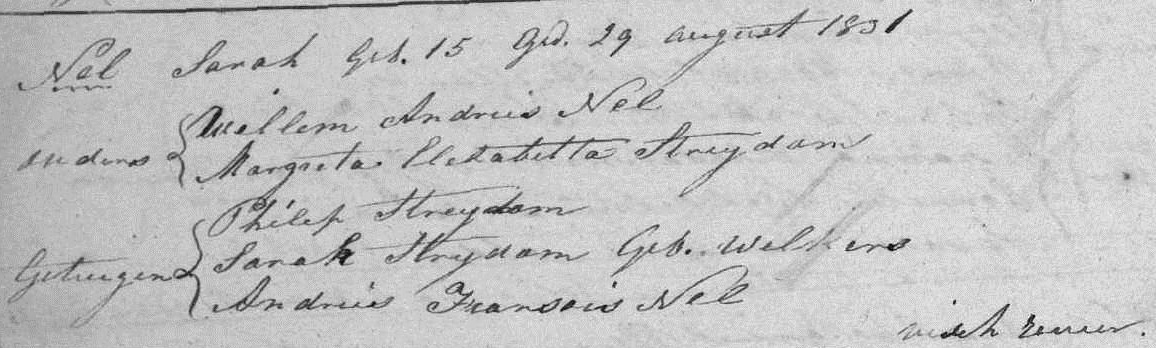 Nel Sarah Geb. 15 Ged. 29 august 1831
ouders Willem Andries Nel
Margreta Elizabetta Streydam
Philip Streydom
Getuigen Sarah Strydom Geb. Welkers
Andries Fransois Nel
visch revier.